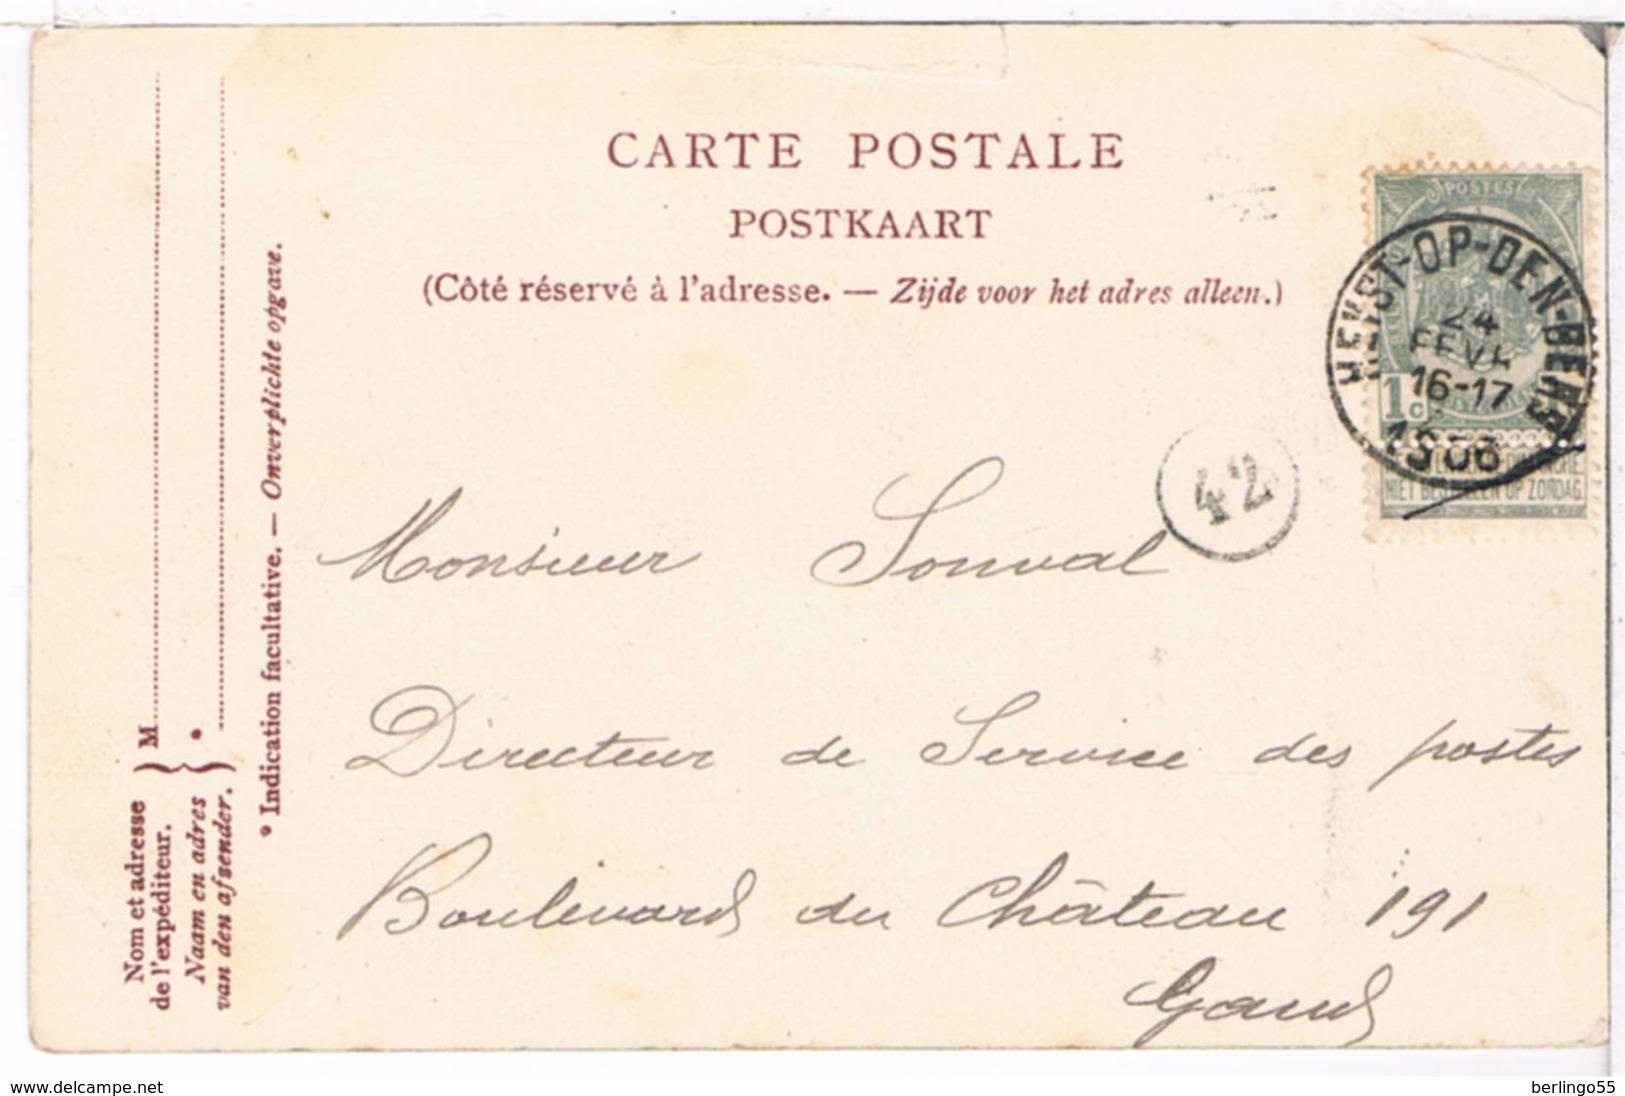 CARTE POSTALE
POSTKAART
(Côté réservé à l'adresse. — Zijde voor het adres alleen.)
POSTES
HEYST-OP-DEN-BERG
24
FEVR
16-17
1906
1c
NIET BESTELLEN OP ZONDAG
42
Monsieur Sonval
Directeur de Service des postes
Boulevard du Château 191
Gand
Nom et adresse
de l'expéditeur.
Naam en adres
van den afzender.
M
*
* Indication facultative. — Onverplichte opgave.
www.delcampe.net
berlingo55